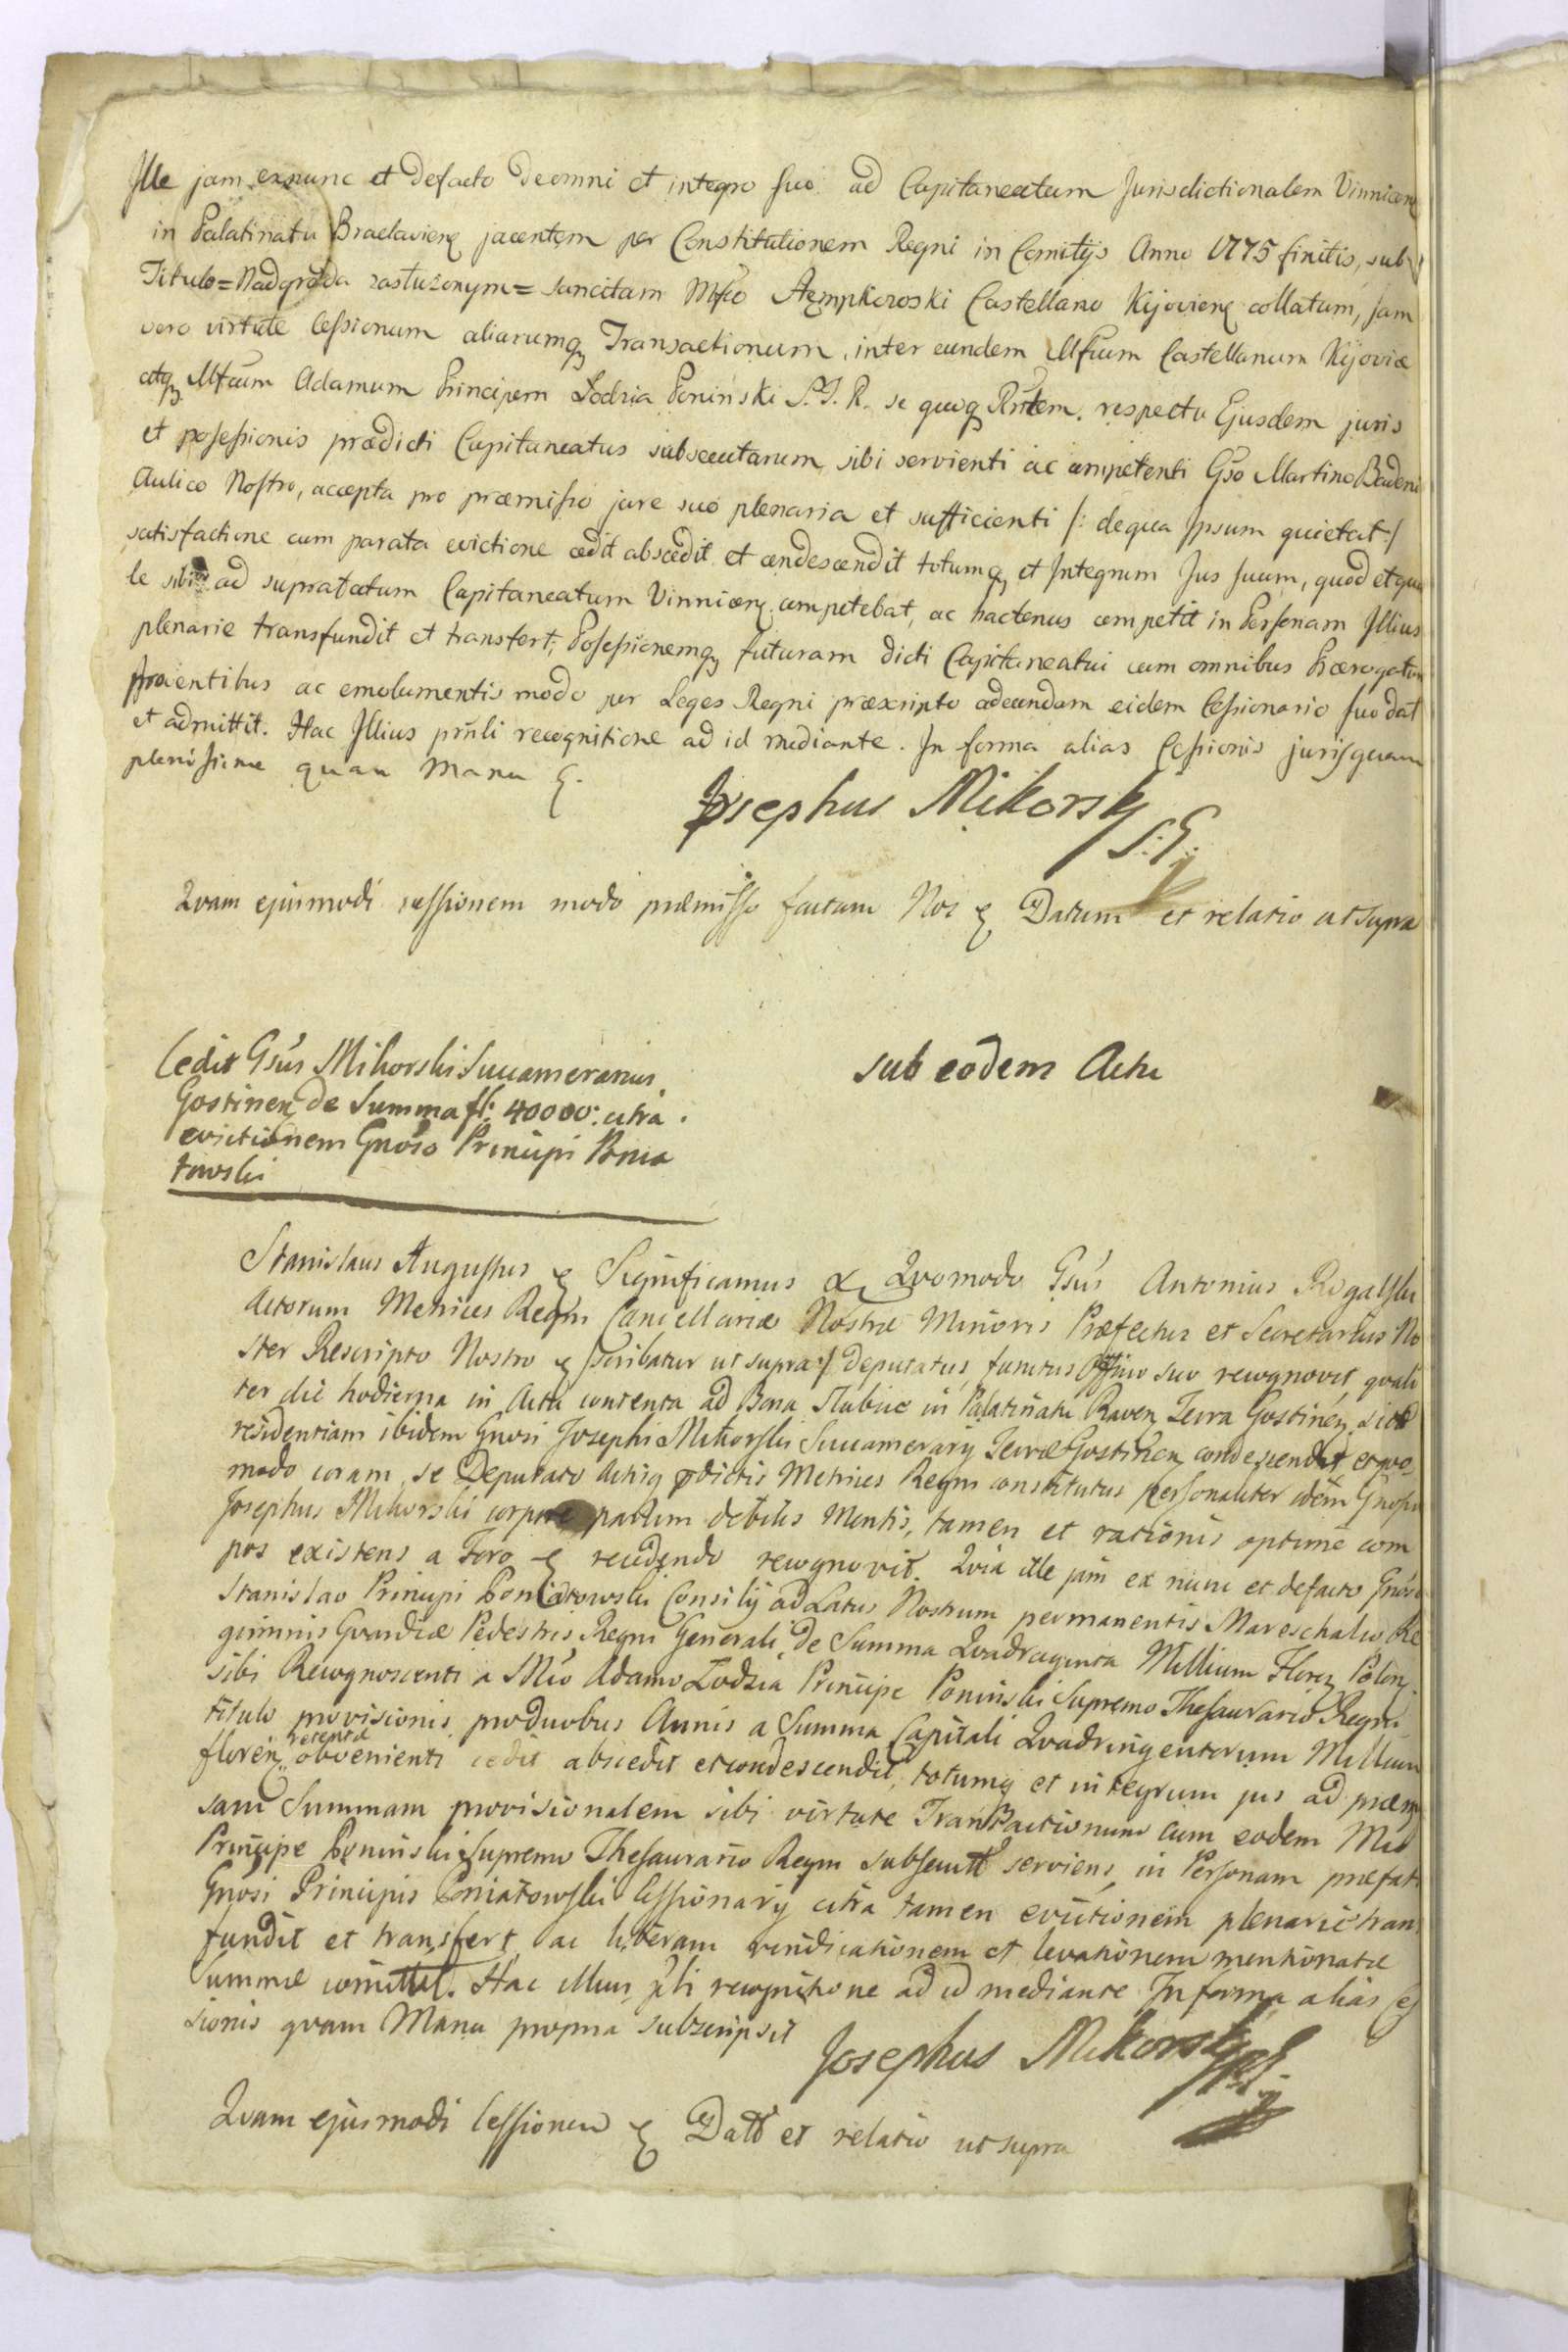 Ille jam exnunc et defacto de omni et integro suo ad Capitaneatum Jurisdictionalem Vinnicen
in Palatinatu Braclavien jacentem per Constitutionem Regni in Comitijs Anno 1775 finitis, sub
Titulo = Nadgroda zasłużonym = sancitam Mfco Stępkowski Castellano Kijovien collatum, jam
vero virtute Cessionum aliarumq Transactionum inter eundem Mfcum Castellanum Kijoviæ
atq Mfcum Adamum Principem Lodzia Poniński S. J. R. se quoq Rntem. respectu Ejusdem juris
et possessionis prædicti Capitaneatus subsecutarum sibi servienti ac competenti Gso Martino Badeni
Aulico Nostro, accepta pro præmisso jure suo plenaria et sufficienti /: de qua Ipsum quietat :/
satisfactione cum parata evictione cedit abscedit et condescendit totumq et Integrum Jus suum, quod et qua
le sibi ad supratactum Capitaneatum Vinnicen competebat, ac hactenus competit in Personam Illius
plenarie transfundit et transfert, Possessionemq futuram dicti Capitaneatui cum omnibus Prærogativis
proventibus ac emolumentis modo per Leges Regni præscripto adeundam eidem Cessionario suo dat
et admittit. Hac Illius prnli recognitione ad id mediante. In forma alias Cessionis juris quam
plenissime quam Manu
Josephus Mikorski
S: G:
Quam ejusmodi cessionem modo præmisso factam Nos Datum et relatio ut supra
Cedit Gsus Mikorski Succamerarius
Gostinen de Summa fl: 40000: citra
evictionem Gnoso Principi Ponia
towski
sub eodem Actu
Stanislaus Augustus Significamus & Quomodo Gsus Antonius Rogalski
Actorum Metrices Regni Cancellariæ Nostræ Minoris Præfectus et Secretarius No
ster Rescripto Nostro /scribatur ut supra:/ deputatus, functus Officio suo recognovit, quali
ter die hodierna in Actu contenta ad Bona Słubice in Palatinatu Raven Terra Gostinen sita
residentiam ibidem Gnosi Josephi Mikorski Succamerarij Terræ Gostinen condescendit et quo
modo coram se Deputato Actisq pdictis Metrices Regni constitutus personaliter idem Gnosus
Josephus Mikorski corpore parum debilis Mentis, tamen et rationis optime com
pos existens a Foro recedendo recognovit. Quia ille jam ex nunc et defacto Gnoso
Stanislao Principi Poniatowski Consilij ad Latus Nostrum permanentis Mareschalco Re
giminis Gvardiæ Pedestris Regni Generali, de Summa Quadraginta Millium Floren Polon
sibi Recognoscenti a Mco Adamo Lodzia Principe Poniński Supremo Thesaurario Regni
titulo provisionis pro duobus Annis a Summa Capitali Quadringentorum Millium
floren retenta obvenienti cedit abscedit et condescendit, totumq et integrum jus ad præmis
sam Summam provisionalem sibi virtute Transactionum cum eodem Mco
Principe Poniński Supremo Thesaurario Regni subsecutt serviens, in Personam præfati
Gnosi Principis Poniatowski Cessionarij citra tamen evictionem plenarie trans
fundit et transfert, ac liberam vindicationem et levationem mentionatæ
Summæ comittit. Hac illius pnli recognitione ad id mediante In forma alias Ces
sionis quam Manu propria subscripsit
Josephus Mikorski
Quam ejusmodi Cessionem Datt et relatio ut supra